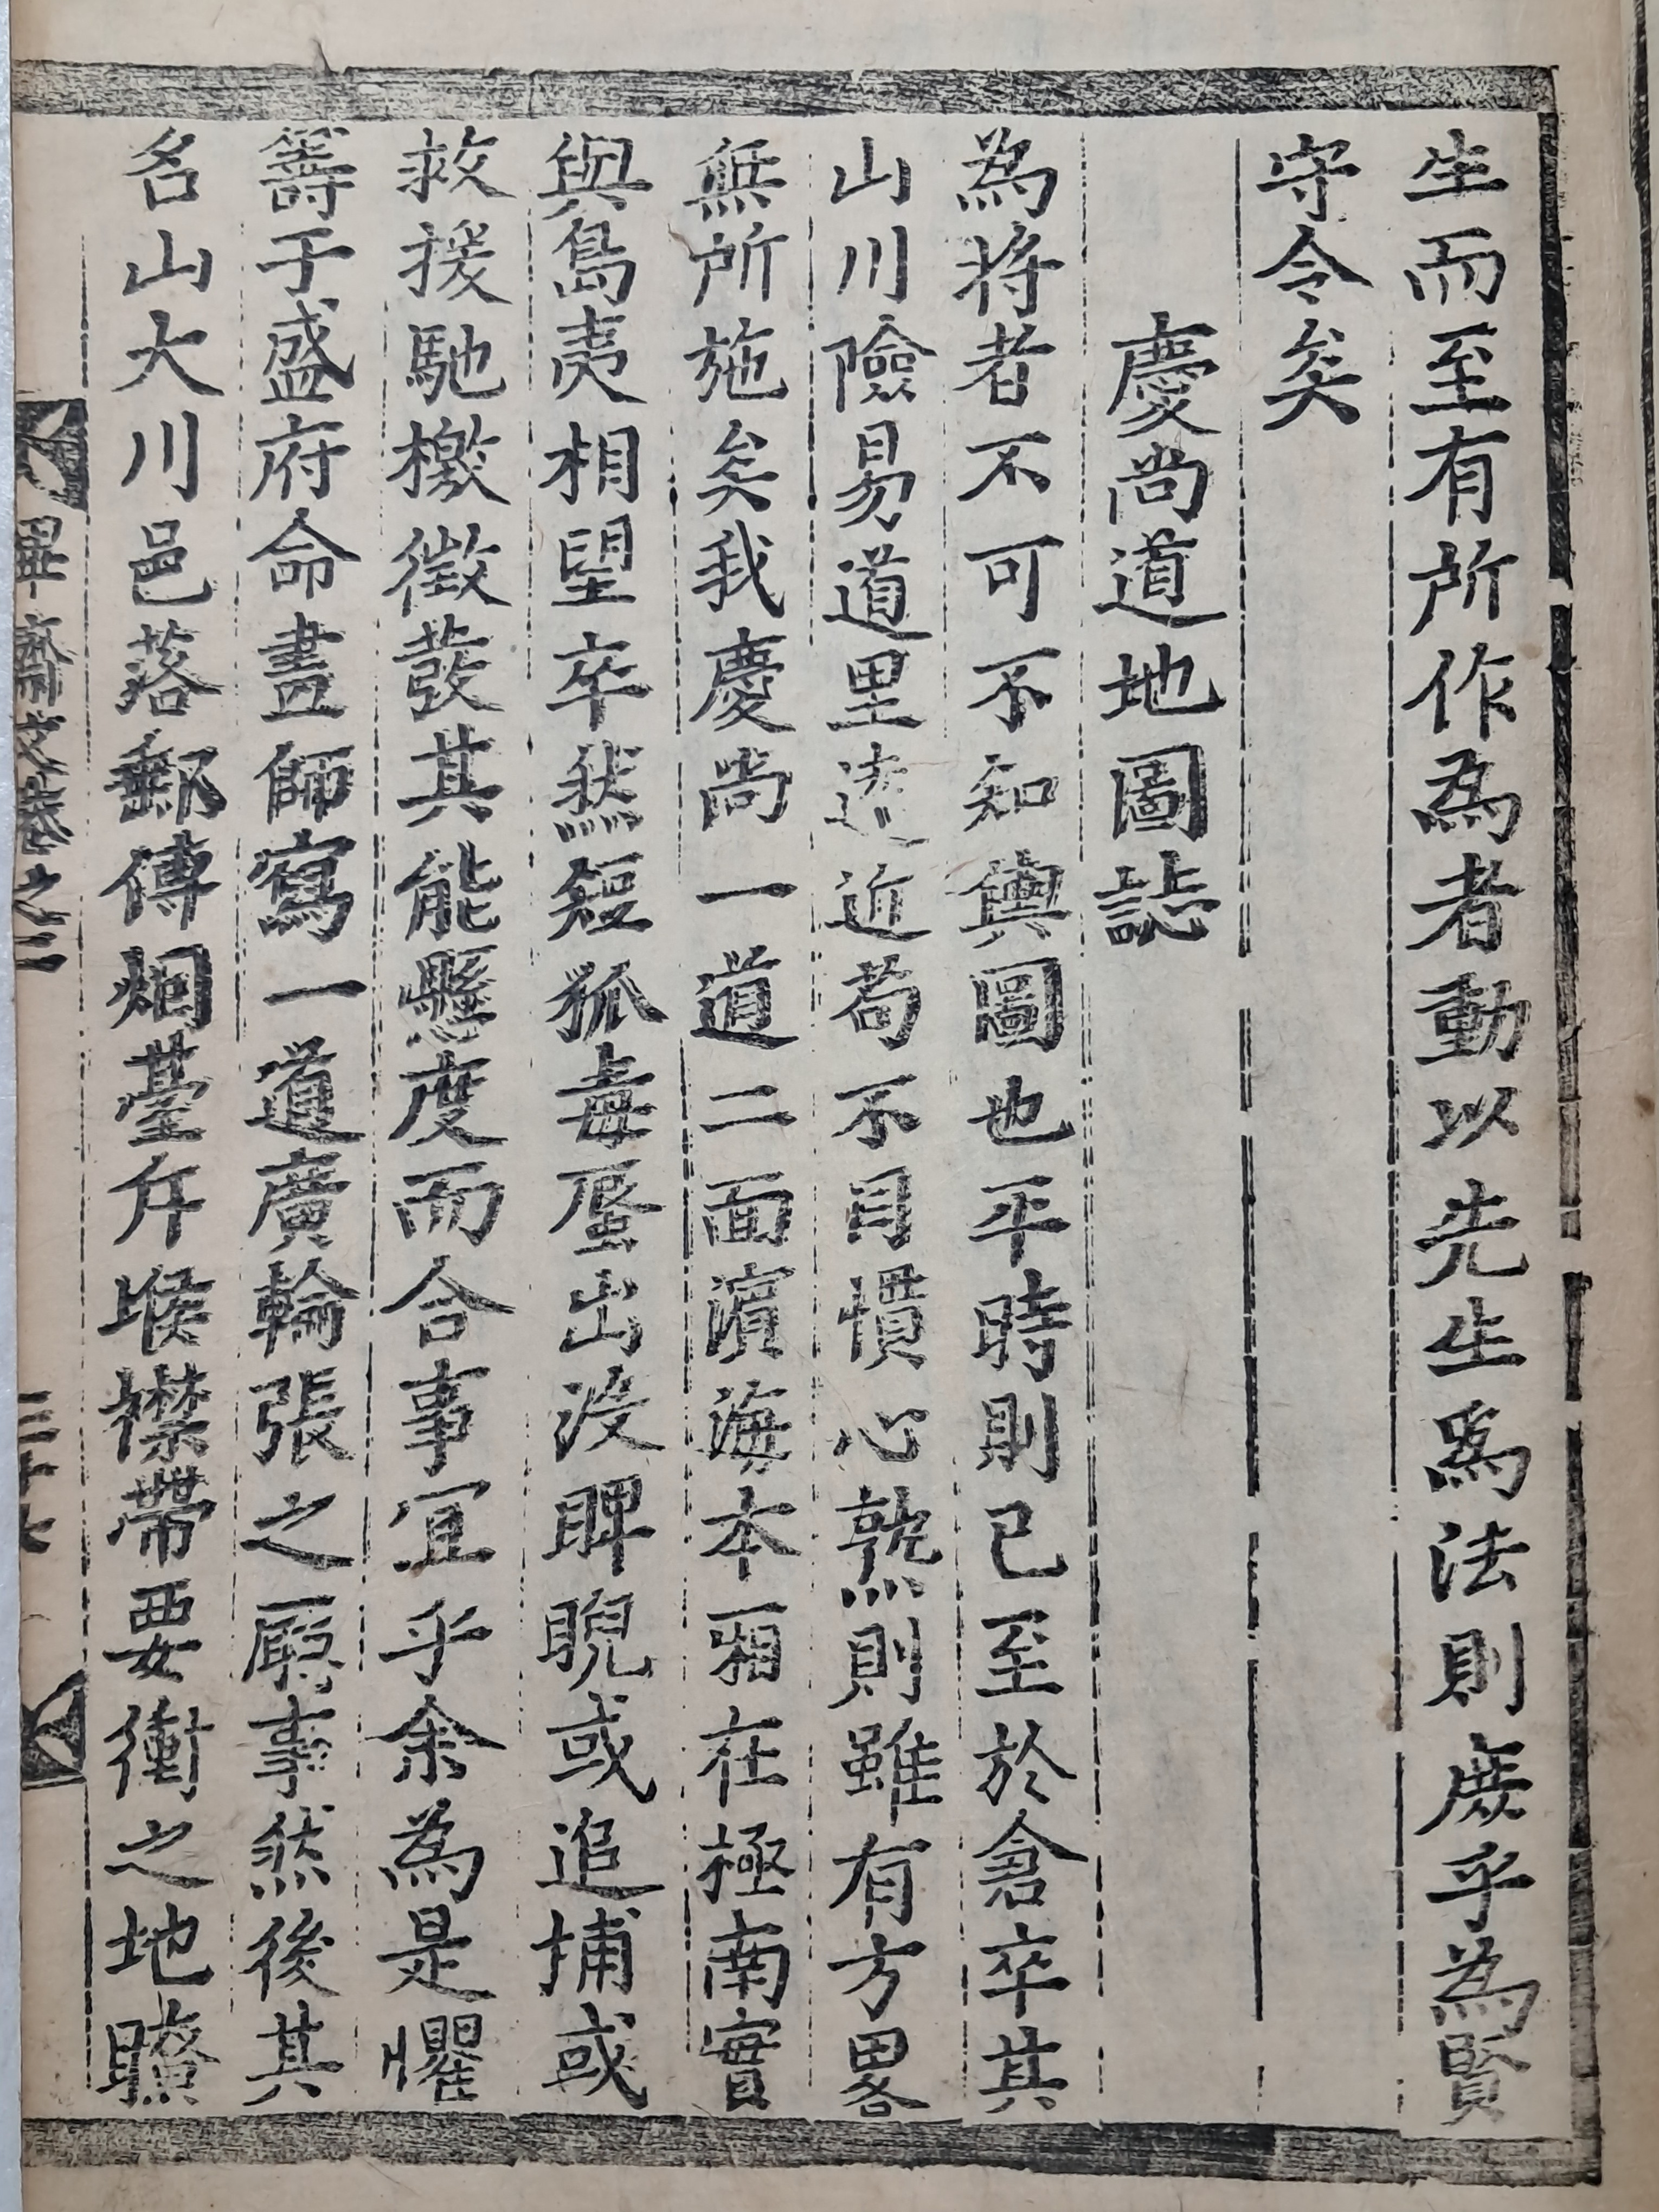 生而至有所作為者動以先生爲法則庶乎為賢
守令矣
慶尚道地圖誌
為将者不可不知輿圖也平時則已至於倉卒其
山川險易道里遠近苟不目慣心熟則雖有方畧
無所施矣我慶尚一道二面濵海本廂在極南實
與島夷相望卒然短狐毒蜃出没睥睨或追捕或
救援馳檄徵發其能懸度而合事宜乎余為是懼
籌于盛府命畫師寫一道廣輪張之廳事然後其
名山大川邑落郵傳烟臺斥堠襟帶要衝之地瞭
畢齋文集之二